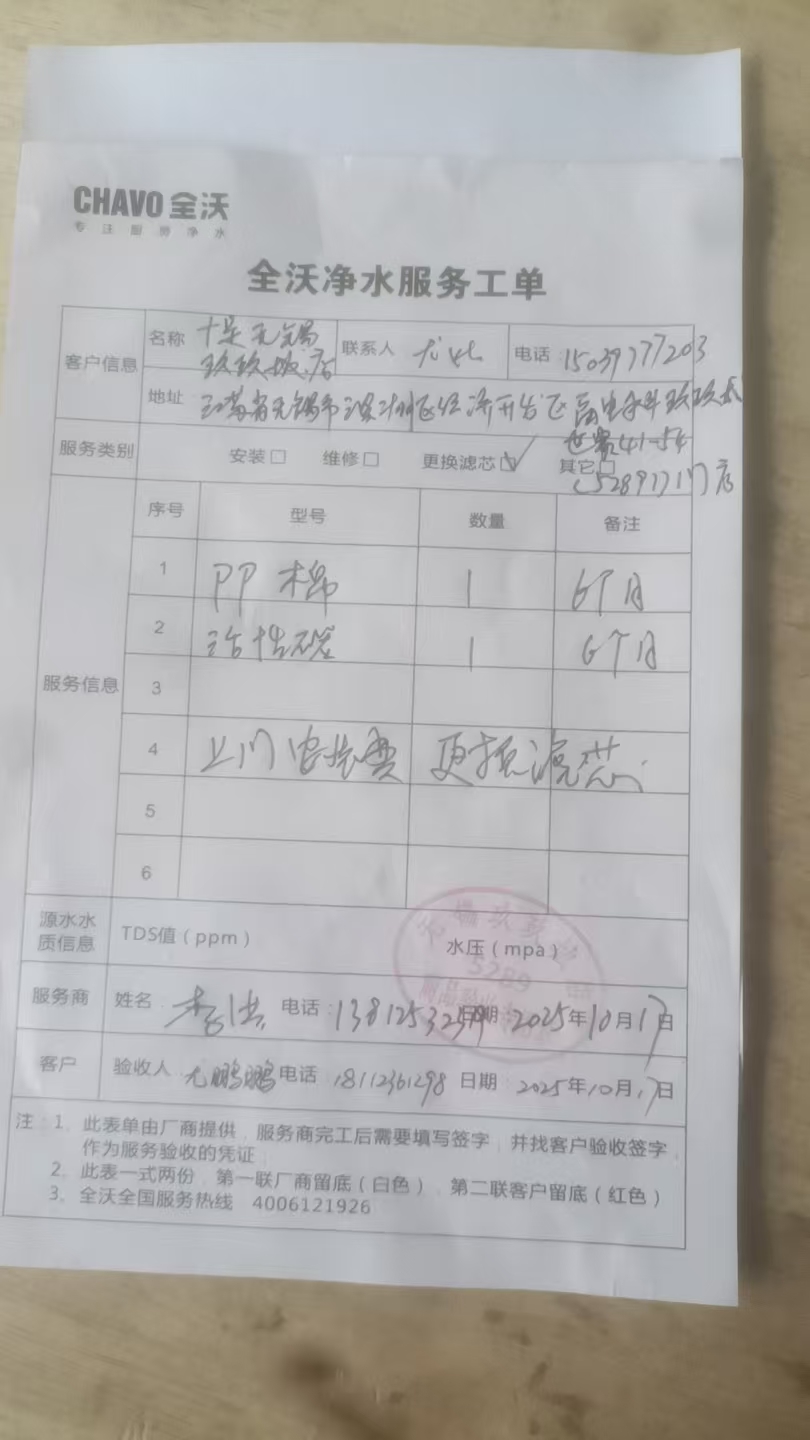 CHAVO 全沃
专注厨房净水
全沃净水服务工单
客户信息 名称 十足无锡玖玖城店 联系人 电话 15039777203
地址 江苏省无锡市滨湖区经济开发区
41-54
(5289)门店
服务类别 安装□ 维修□ 更换滤芯☑ 其它□
服务信息 序号 型号 数量 备注
1 PP棉 1 6个月
2 活性碳 1 6个月
3
4 上门安装费 更换滤芯
5
6
源水水质信息 TDS值(ppm) 水压(mpa)
5289
服务商 姓名 李洪 电话: 日期: 2025年10月17日
客户 验收人 尤鹏鹏 电话 18112361298 日期: 2025年10月17日
注:1、此表单由厂商提供,服务商完工后需要填写签字,并找客户验收签字,
作为服务验收的凭证
2、此表一式两份,第一联厂商留底(白色),第二联客户留底(红色)
3、全沃全国服务热线 4006121926